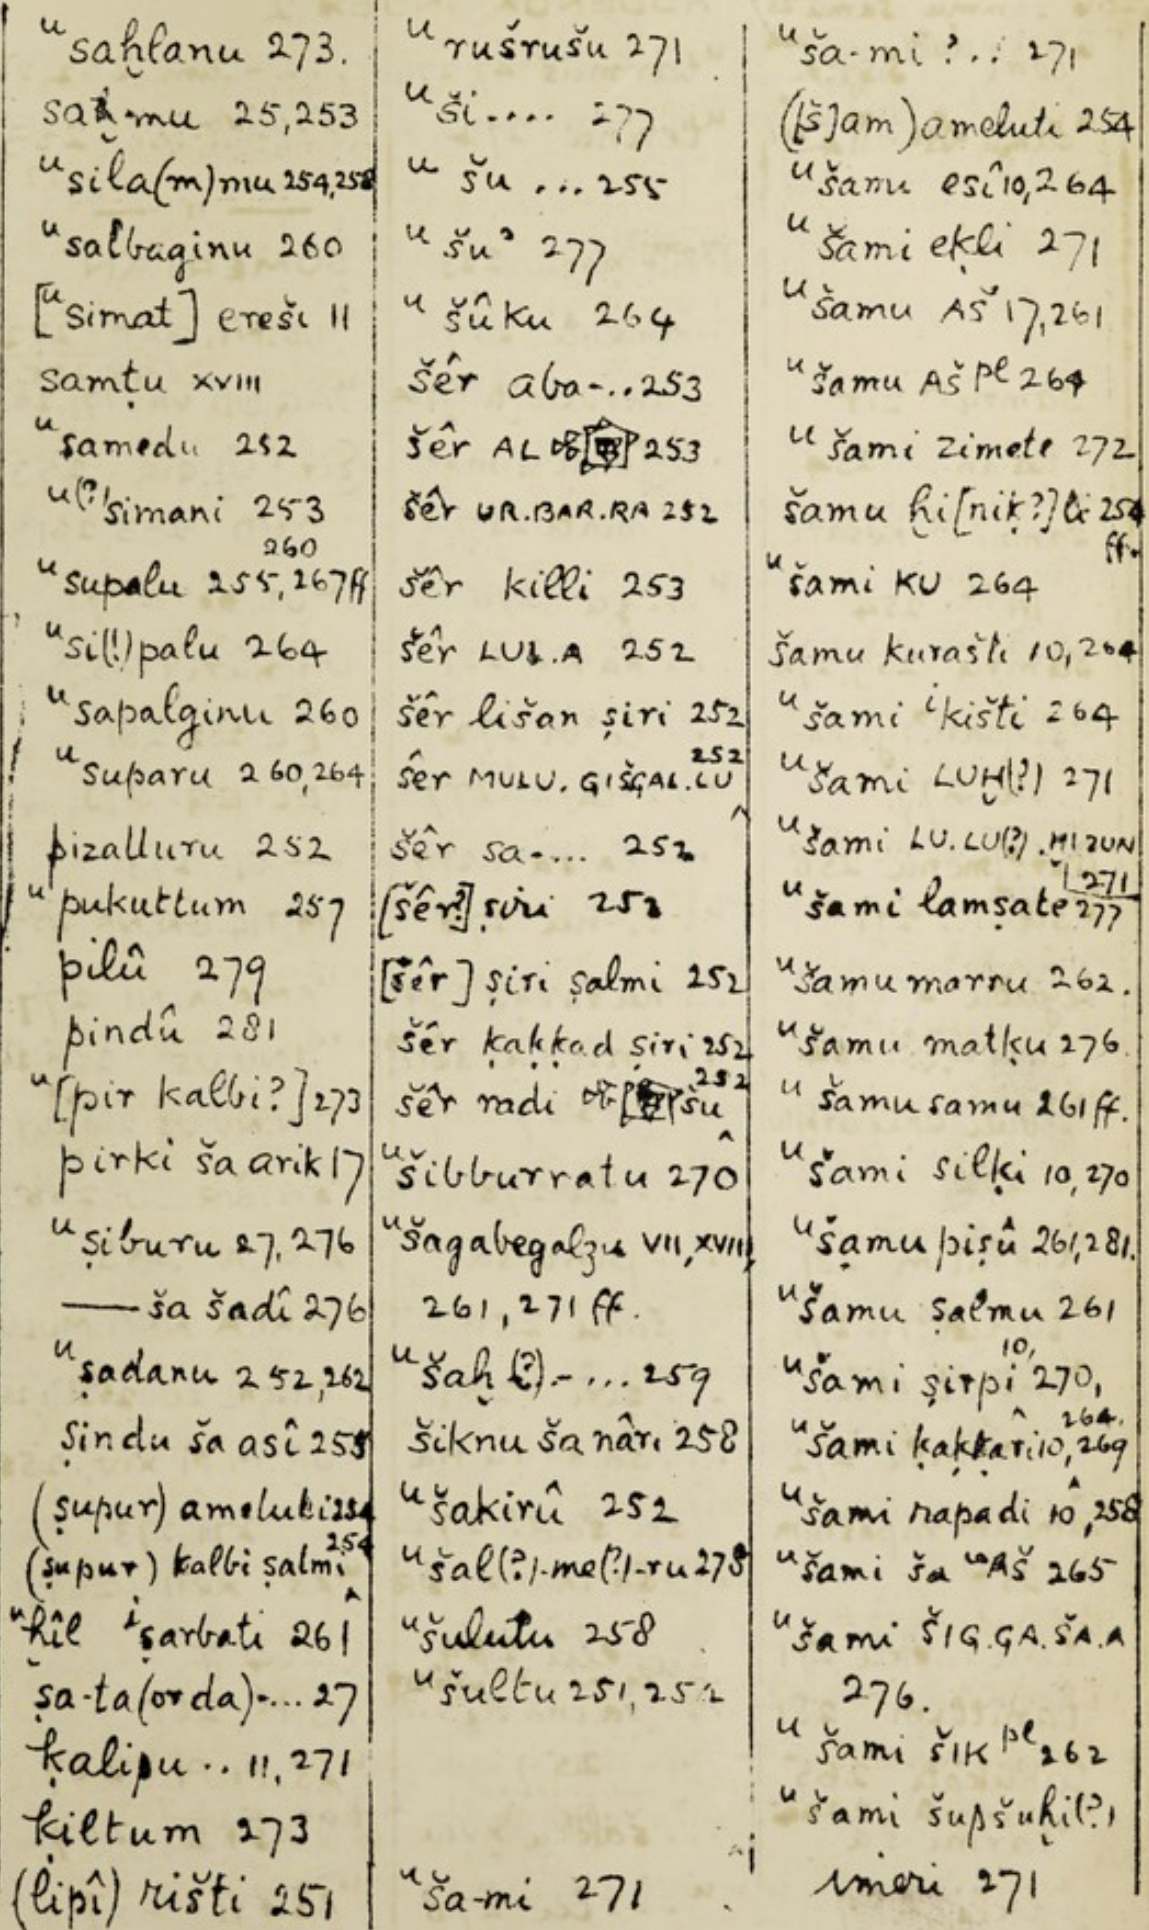 ᵘsaḫlanu 273.
saḫmu 25,253
ᵘsila(m)mu 254,258
ᵘsalbaginu 260
[ᵘsimat] ereši 11
samṭu XVIII
ᵘsamedu 252
ᵘ⁽?⁾simani 253
260
ᵘsupalu 255,267ff
ᵘsi(!)palu 264
ᵘsapalginu 260
ᵘsuparu 260,264
pizalluru 252
ᵘpukuttum 257
pilû 279
pindû 281
ᵘ[pir kalbi?] 273
pirki ša arik 17
ᵘṣiburu 27,276
—— ša šadî 276
ᵘṣadanu 252,262
ṣindu ša asî 255
(ṣupur) ameluti 254
(ṣupur) kalbi ṣalmi 254
ᵘḫîl ⁱṣarbati 261
ṣa-ta(or da)-... 27
ḳalipu .. 11,271
ḳiltum 273
(lipî) rišti 251
ᵘrušrušu 271
ᵘši.... 277
ᵘšu ... 255
ᵘšuʾ 277
ᵘšûku 264
šêr aba-.. 253
šêr AL 253
šêr UR.BAR.RA 252
šêr killi 253
šêr LUL.A 252
šêr lišan ṣiri 252
šêr MULU.GIŠGAL.LU 252
šêr sa-.... 252
[šêr?] ṣiri 252
[šêr] ṣiri ṣalmi 252
šêr ḳaḳḳad ṣiri 252
šêr radi šu 252
ᵘšibburratu 270
ᵘšagabegalzu VII,XVIII,
261,271 ff.
ᵘšaḫ(?)-... 259
šiknu ša nâri 258
ᵘšakirû 252
ᵘšal(?)-me(?)-ru 278
ᵘšulutu 258
ᵘšultu 251,252
ᵘša-mi 271
ᵘša-mi ?.. 271
([š]am) ameluti 254
ᵘšamu esî 10,264
ᵘšami eḳli 271
ᵘšamu AŠ 17,261
ᵘšamu AŠ ᵖˡ 264
ᵘšami zimete 272
šamu ḫi[niḳ?]ti 254
ff.
ᵘšami KU 264
šamu kurašti 10,264
ᵘšami ⁱkišti 264
ᵘšami LUḪ(?) 271
ᵘšami LU.LU(?).ḪI ZUN
271
ᵘšami lamṣate 277
ᵘšamu marru 262.
ᵘšamu matḳu 276.
ᵘšamu samu 261ff.
ᵘšami silḳi 10,270
ᵘšamu piṣû 261,281.
ᵘšamu ṣalmu 261
ᵘšami ṣirpi 10, 270,
264.
ᵘšami ḳaḳḳari 10,269
ᵘšami rapadi 10,258
ᵘšami ša ᵘAŠ 265
ᵘšami ŠIG.GA.ŠA.A
276.
ᵘšami ŠIK ᵖˡ 262
ᵘšami šupšuḫi(?)
imeri 271